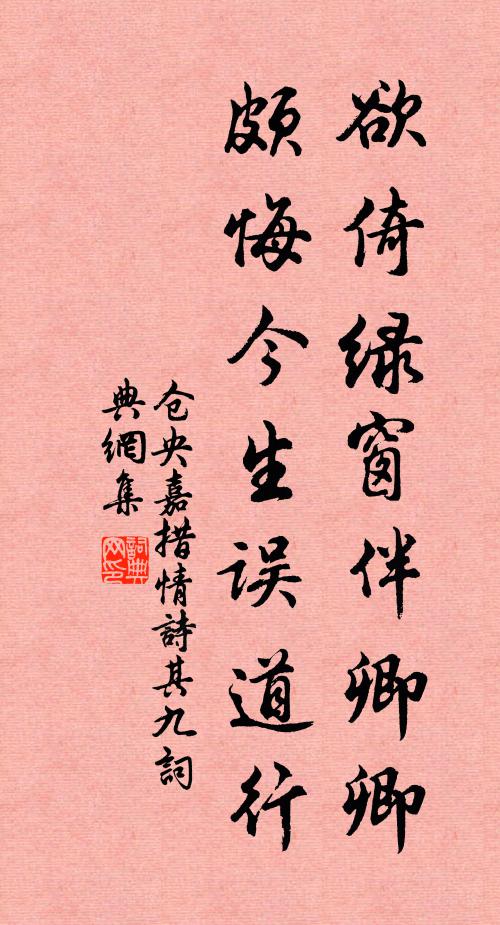 欲倚绿窗伴卿卿
颇悔今生误道行
仓央嘉措情詩其九詞
典網集
詞典
网印